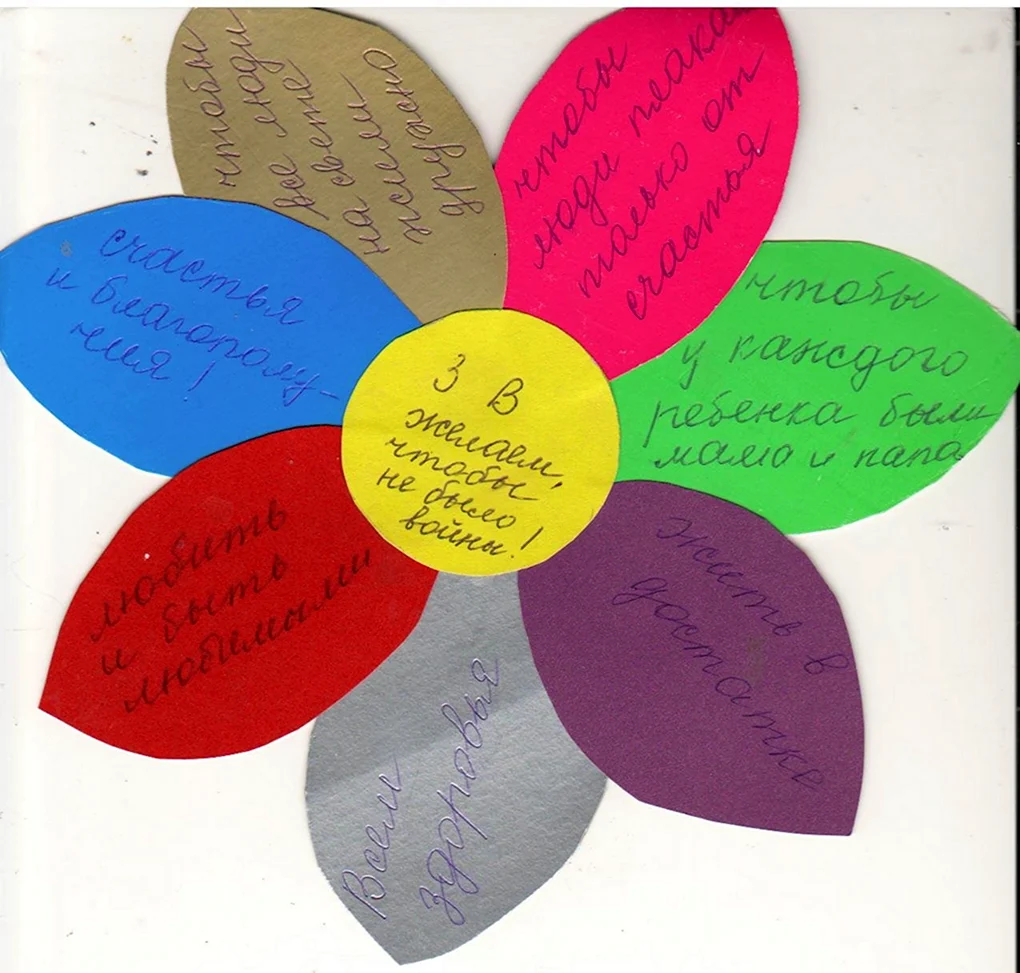 чтобы
все люди
на свете
жили
дружно
чтобы
люди плака
только от
счастья
чтобы
у каждого
ребенка были
мама и папа
жить в
достатке
Всем
здоровья
любить
и быть
любимыми
счастья
и благополу-
чия!
3 В
желаем,
чтобы
не было
войны!